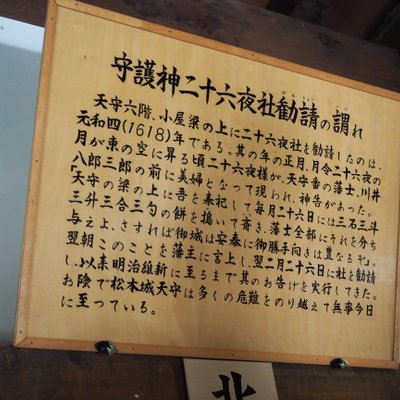 守護神二十六夜社勧請の謂れ
天守六階、小屋梁の上に二十六夜社を勧請したのは、
元和四(1618)年である。其の年の正月、月令二十六夜の
月が東の空に昇る頃二十六夜様が、天守番の藩士、川井
八郎三郎の前に美婦となって現われ、神告があった。
「天守の梁の上に吾を奉祀して毎月二十六日には三石三斗
三升三合三勺の餅を搗いて斎き、藩士全部にそれを分ち
与えよ、さすれば御城は安泰に御勝手向きは豊なるぞ」。
翌朝このことを藩主に言上し、翌二月二十六日に社を勧請
し、以来明治維新に至るまで其のお告げを実行してきた。
お陰で松本城天守は多くの危難をのり越えて無事今日
に至っている。
北